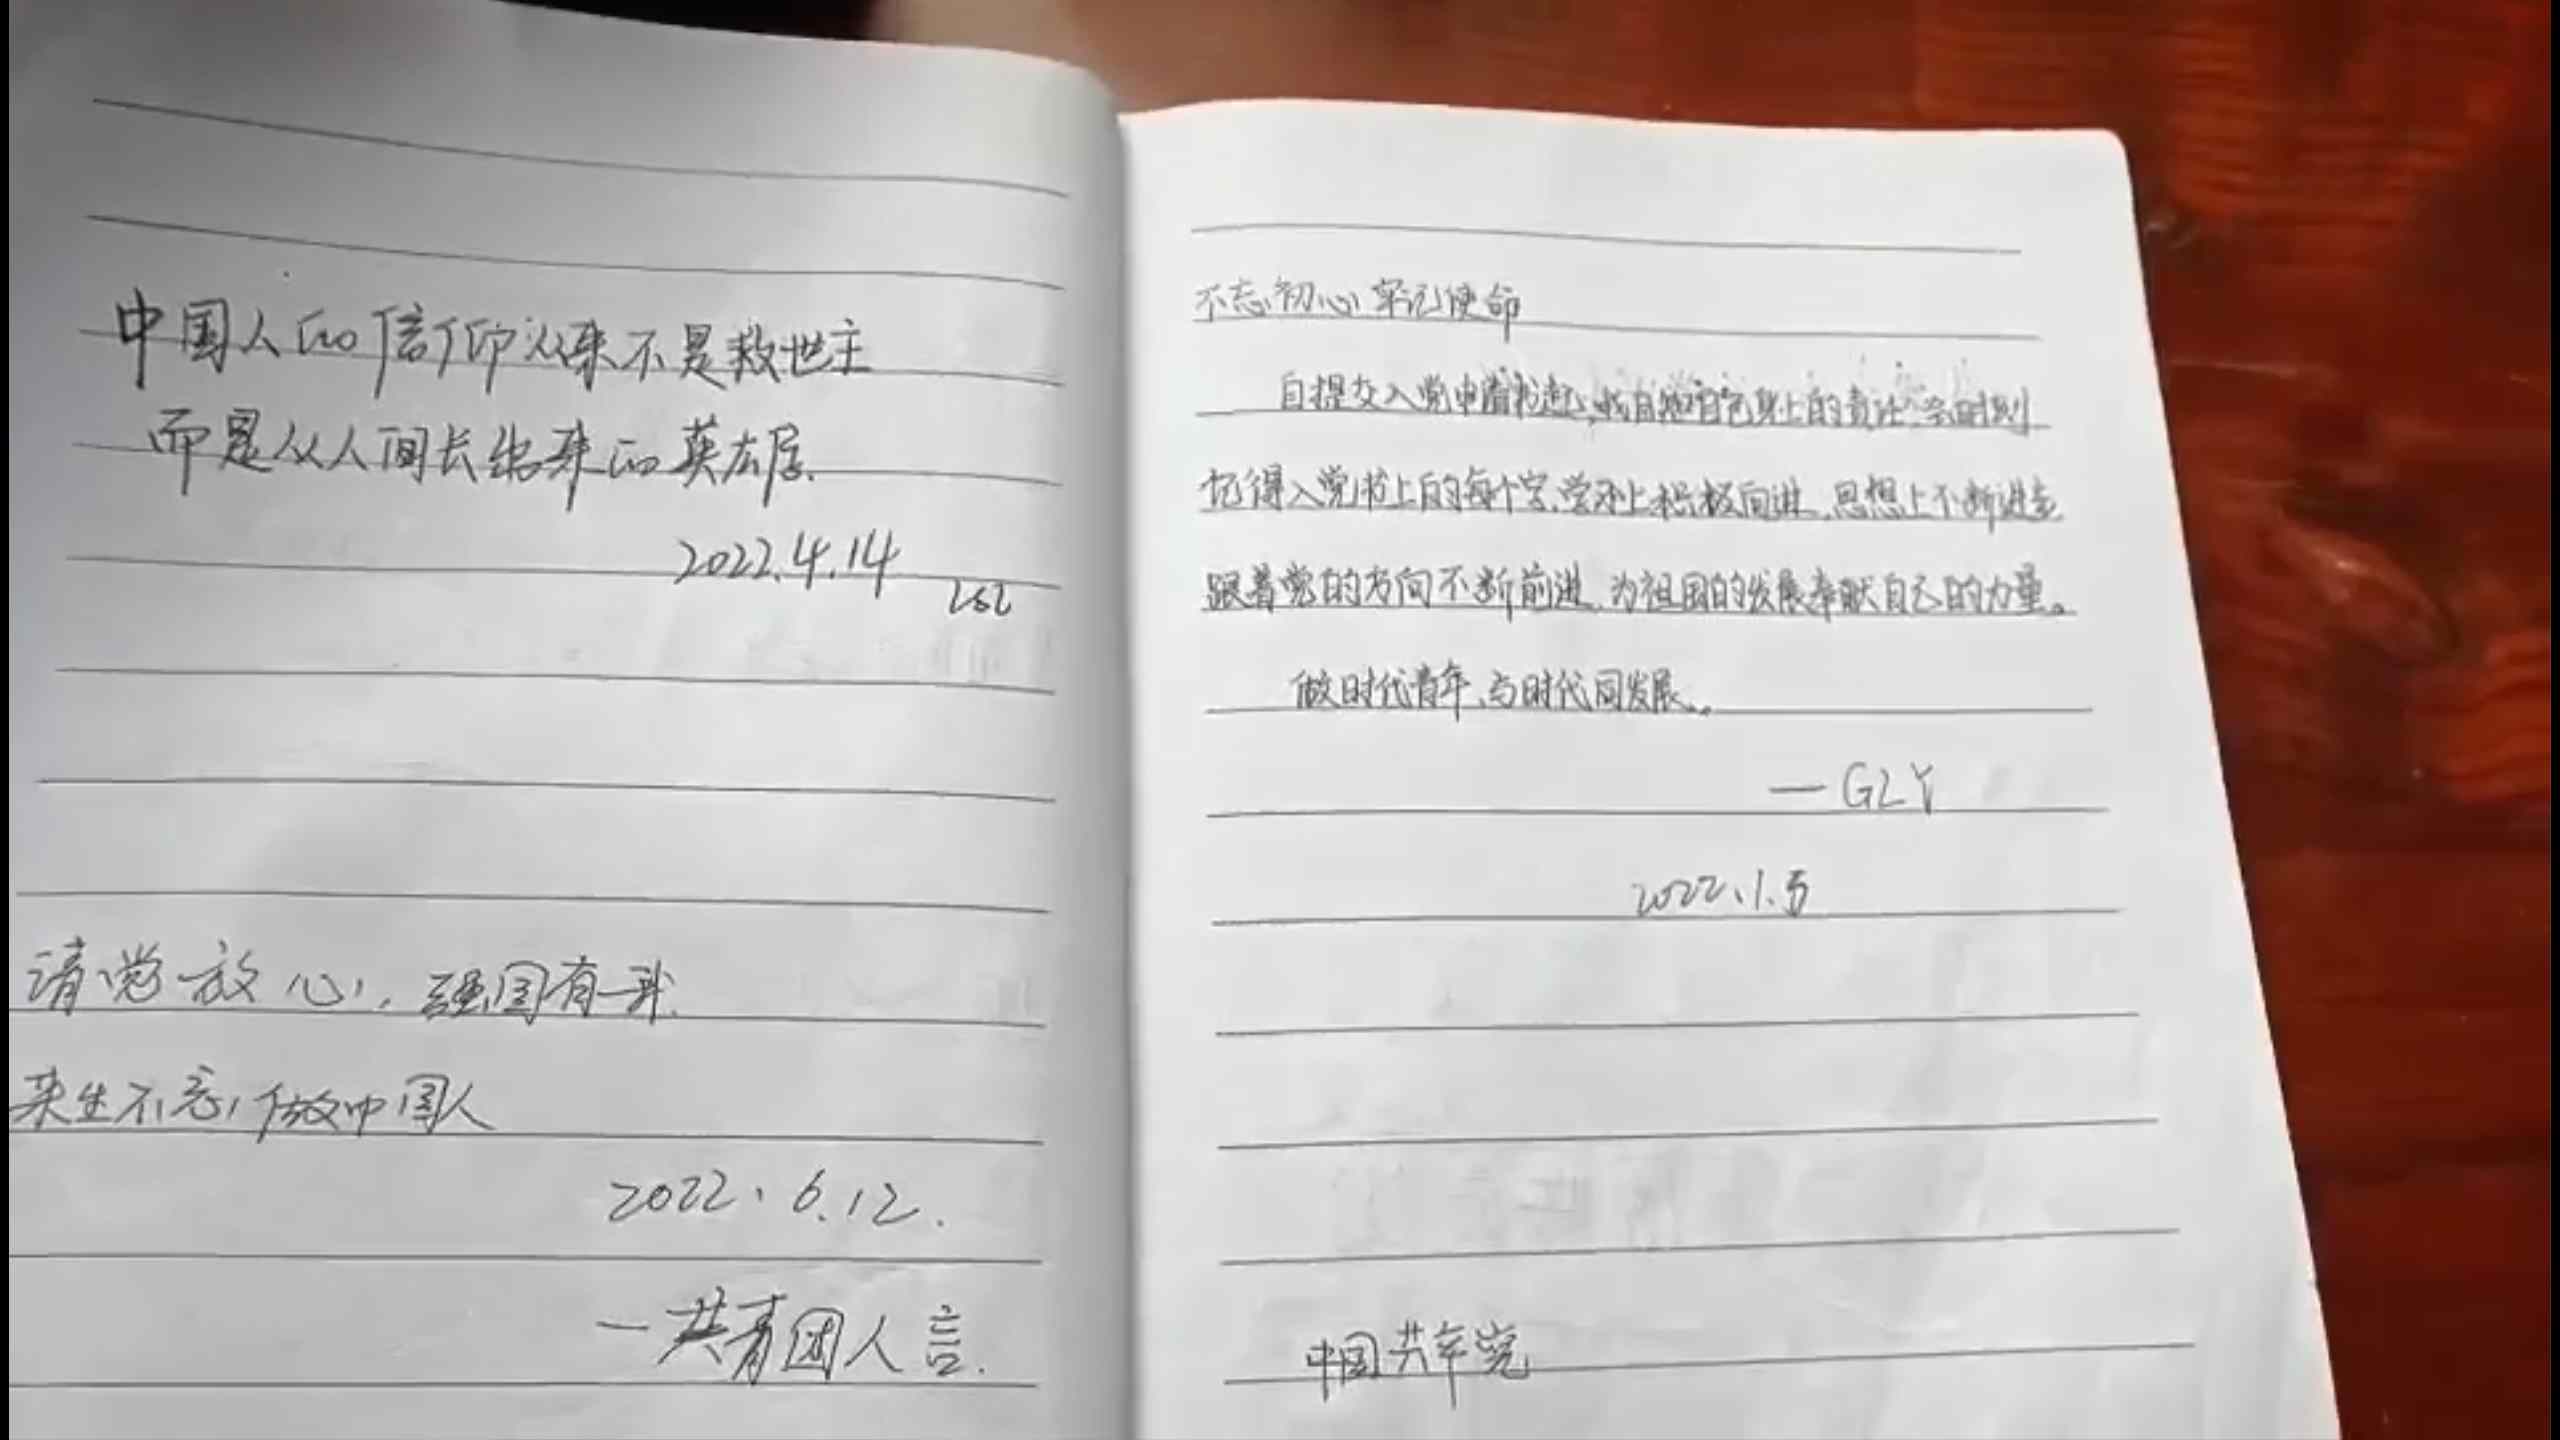 中国人的信仰从来不是救世主
而是从人间长出来的英雄.
2022.4.14
LSL
请党放心,强国有我.
来生不忘做中国人
2022.6.12.
一共青团人言.
不忘初心 牢记使命
自提交入党申请书起,我自知自己身上的责任,会时刻
记得入党书上的每个字,学习上积极向进,思想上不断进步
跟着党的方向不断前进,为祖国的发展奉献自己的力量。
做时代青年,与时代同发展。
—GLY
2022.1.5
中国共产党